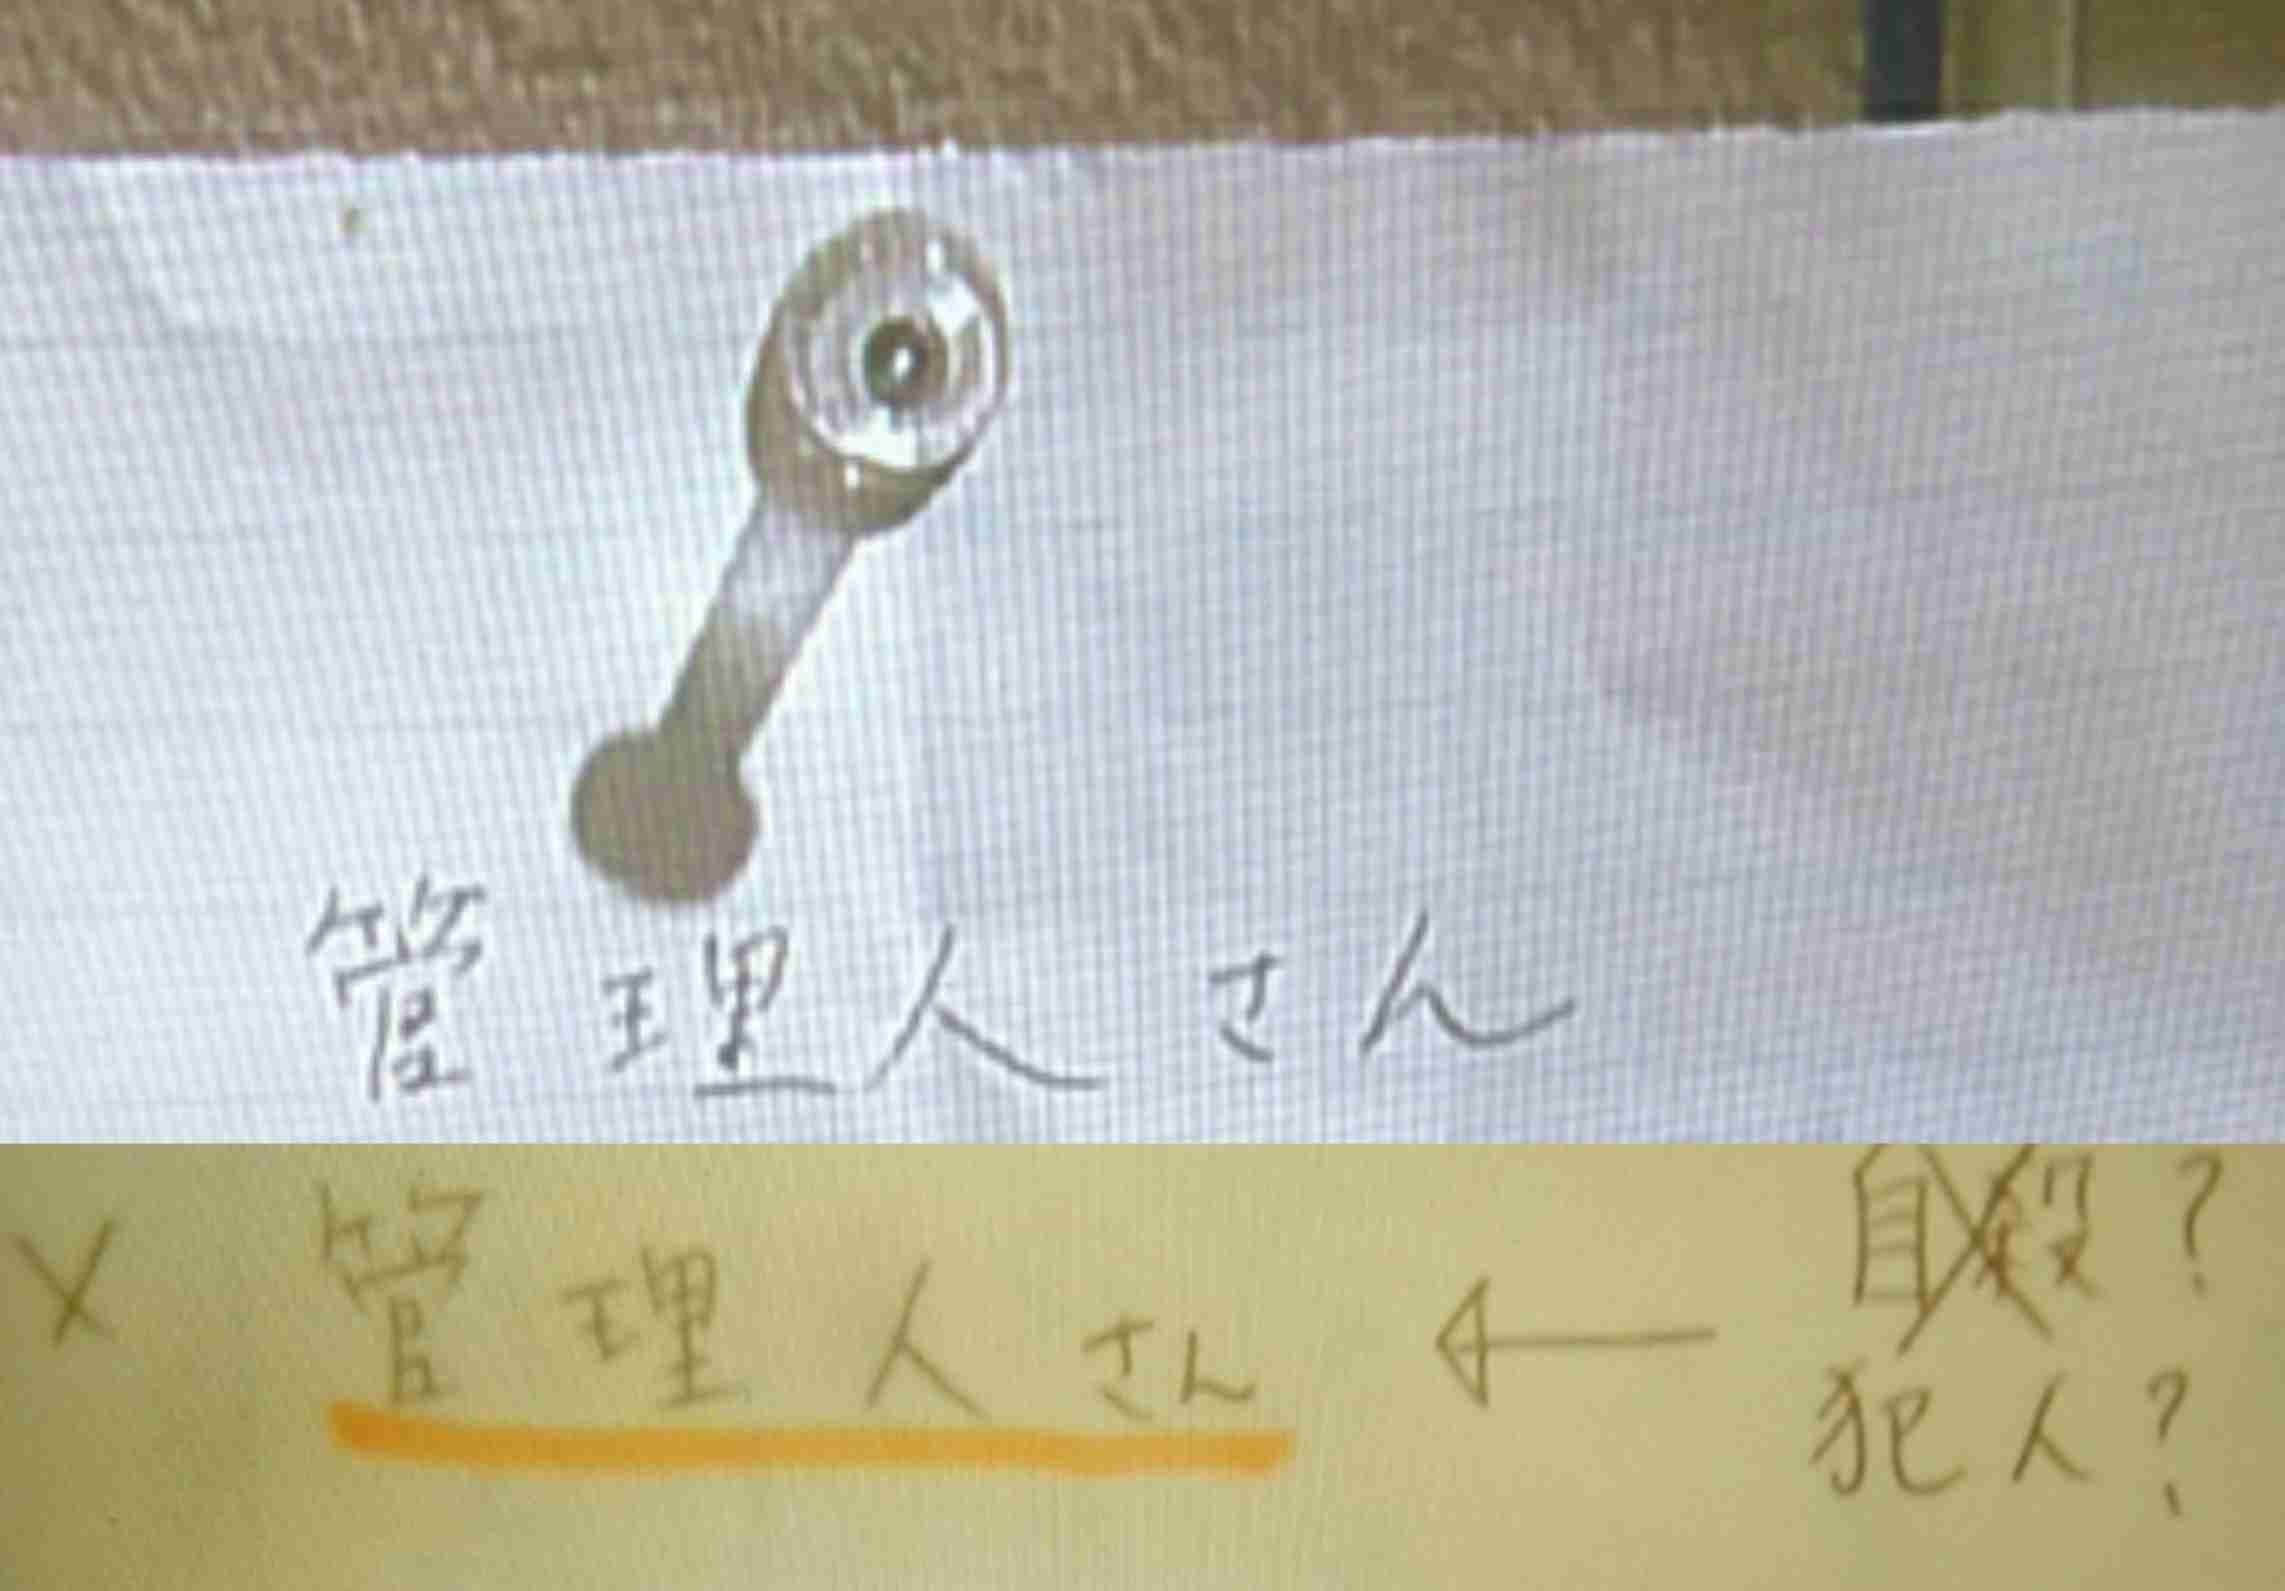 管理人さん
× 管理人さん ← 自殺?
犯人?